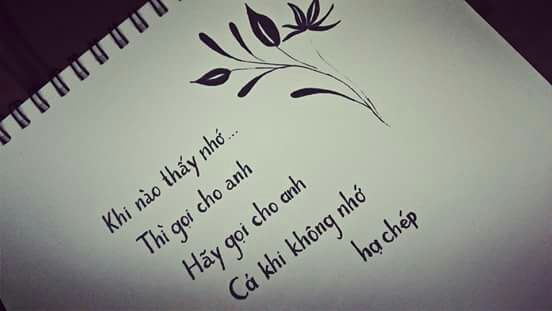 Khi nào thấy nhớ...
Thì gọi cho anh
Hãy gọi cho anh
Cả khi không nhớ
hạ chép